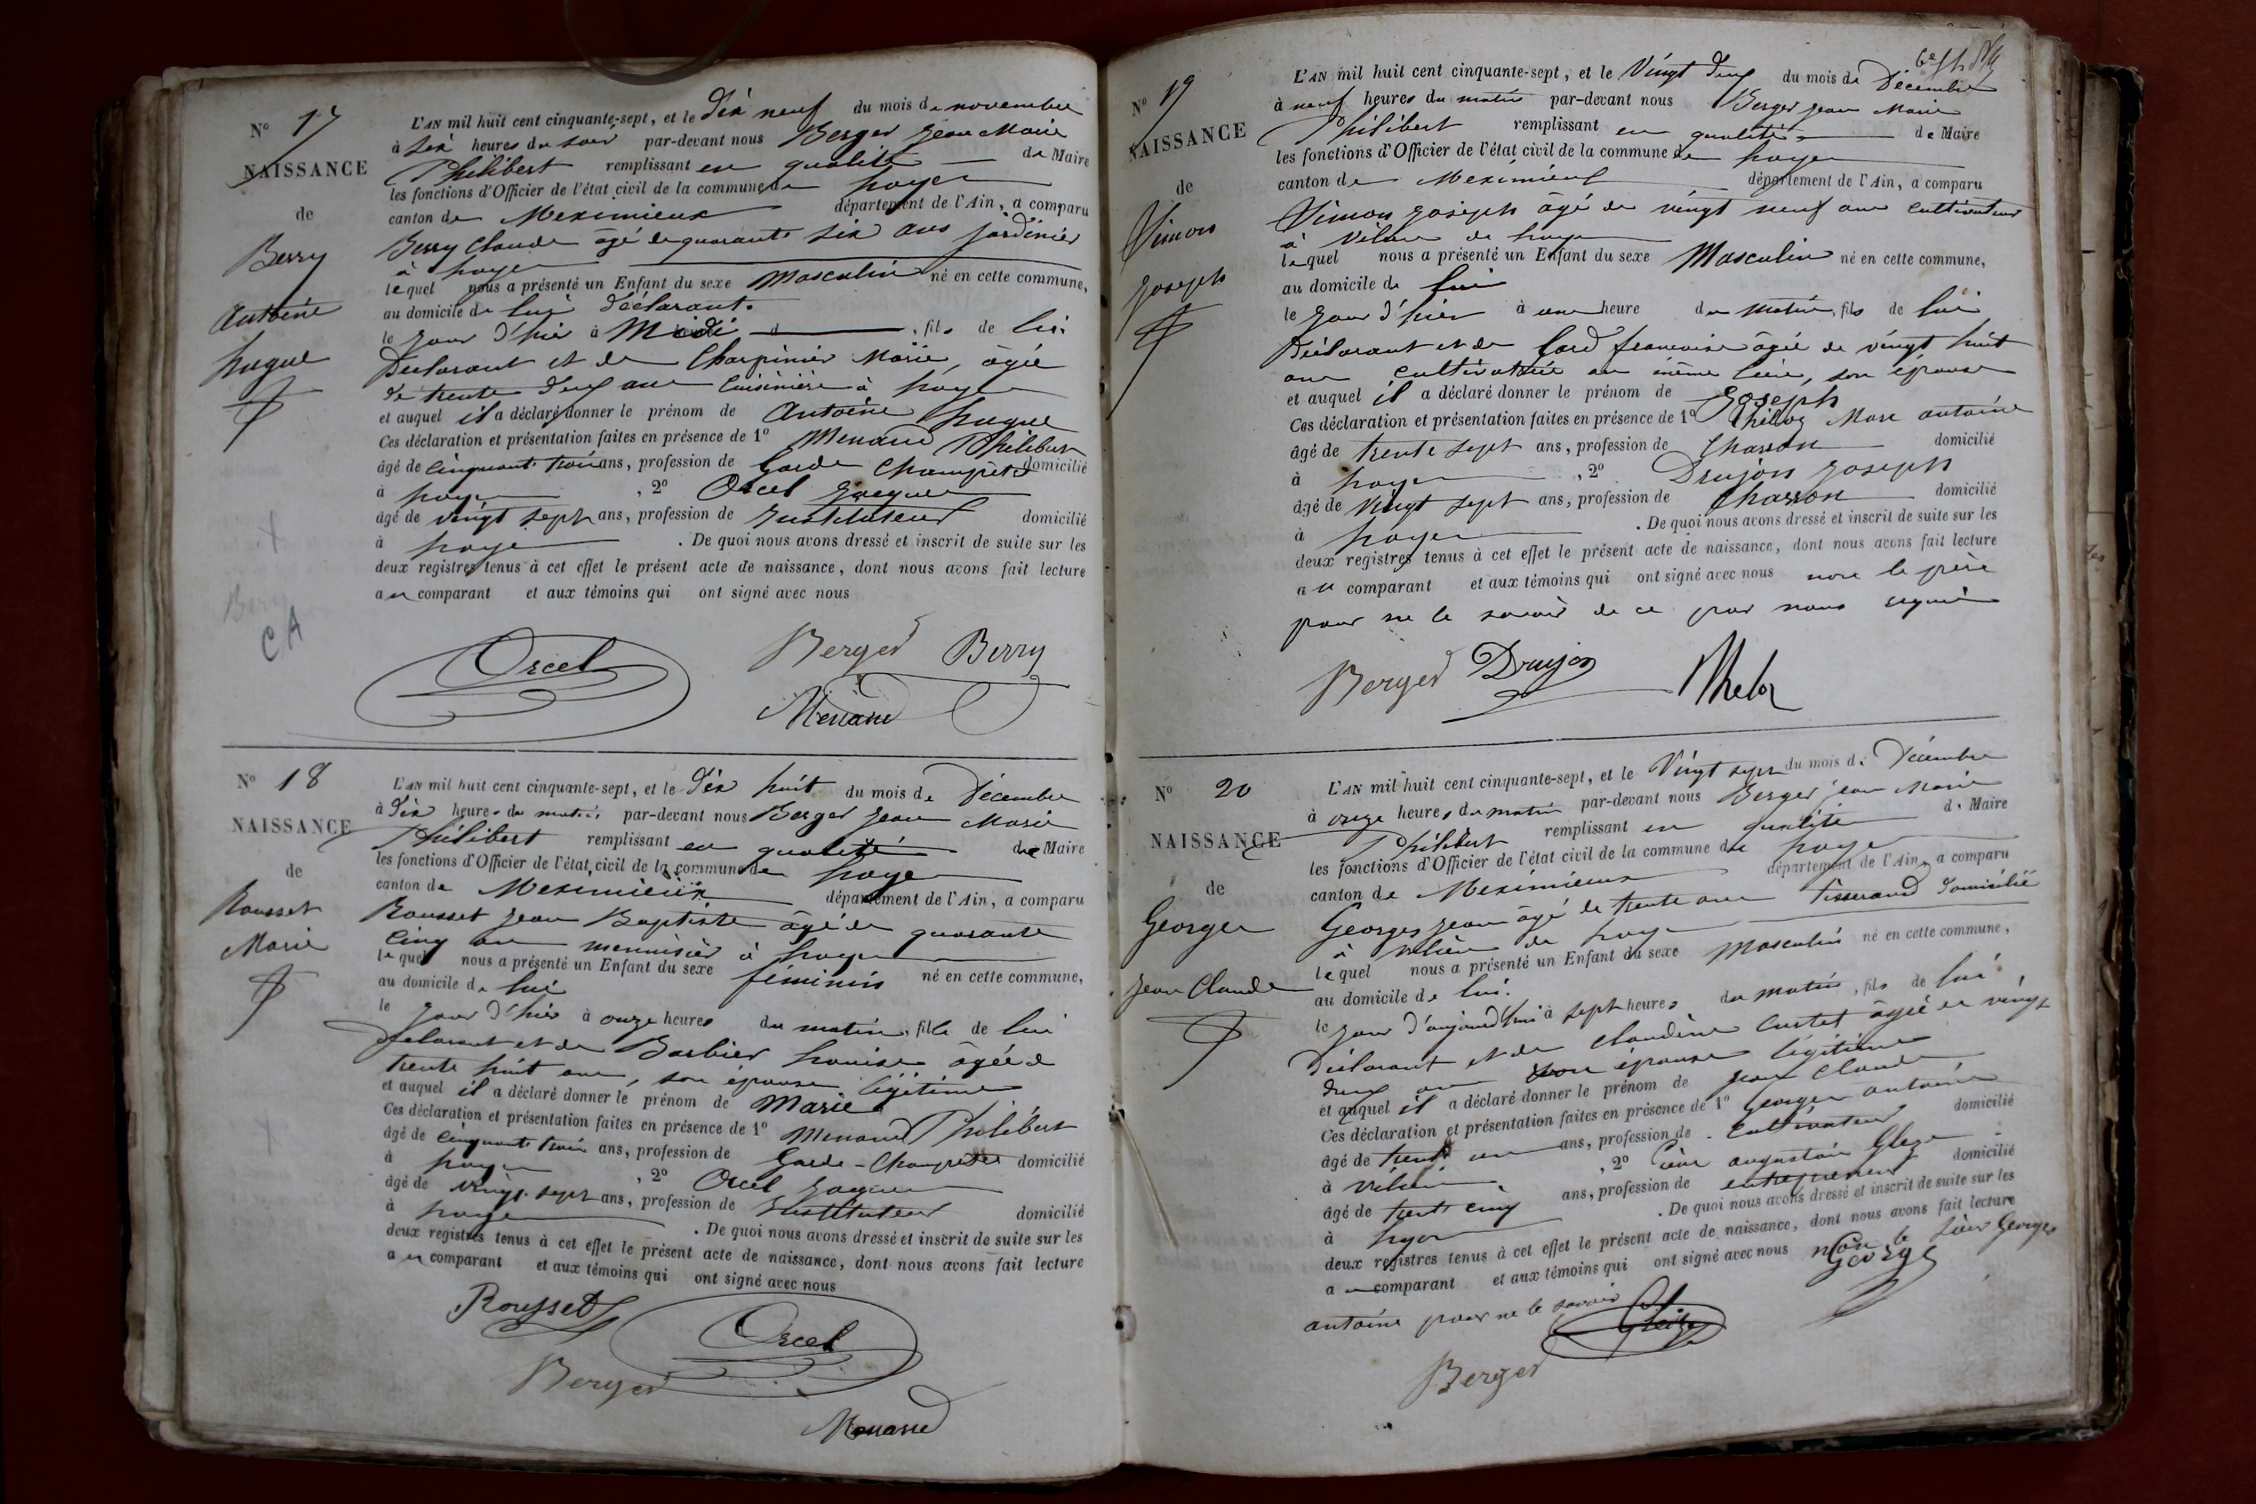 N° 17
NAISSANCE
de
Berry
Antoine
hugue
L'AN mil huit cent cinquante-sept, et le dix neuf du mois de novembre
à six heures du soir par-devant nous Berger Jean Marie
Philibert remplissant en qualité de Maire
les fonctions d'Officier de l'état civil de la commune de Loyes
canton de Meximieux département de l'Ain, a comparu
Berry Claude âgé de quarante six ans jardinier
à Loyes
lequel nous a présenté un Enfant du sexe Masculin né en cette commune,
au domicile de lui déclarant.
le jour d'hier à Midi d fils de lui
Déclarant et de Charpinier Marie, âgée
de trente deux ans cuisinière à Loyes
et auquel il a déclaré donner le prénom de Antoine hugue
Ces déclaration et présentation faites en présence de 1° Menand Philibert
âgé de cinquante trois ans, profession de Garde Champêtre domicilié
à Loyes , 2° Orcel Jacques
âgé de vingt sept ans, profession de Instituteur domicilié
à Loyes . De quoi nous avons dressé et inscrit de suite sur les
deux registres tenus à cet effet le présent acte de naissance, dont nous avons fait lecture
au comparant et aux témoins qui ont signé avec nous
CA
Orcel Berger Berry
Menand
N° 18
NAISSANCE
de
Rousset
Marie
L'AN mil huit cent cinquante-sept, et le dix huit du mois de Décembre
à dix heures du matin par-devant nous Berger Jean Marie
Philibert remplissant en qualité de Maire
les fonctions d'Officier de l'état civil de la commune de Loyes
canton de Meximieux département de l'Ain, a comparu
Rousset Jean Baptiste âgé de quarante
cinq ans menuisier à Loyes
lequel nous a présenté un Enfant du sexe féminin né en cette commune,
au domicile de lui
le jour d'hier à onze heures du matin, fille de lui
déclarant et de Barbier Louise âgée de
trente huit ans, son épouse légitime
et auquel il a déclaré donner le prénom de Marie
Ces déclaration et présentation faites en présence de 1° Menand Philibert
âgé de cinquante trois ans, profession de Garde-Champêtre domicilié
à Loyes , 2° Orcel Jacques
âgé de vingt sept ans, profession de Instituteur domicilié
à Loyes . De quoi nous avons dressé et inscrit de suite sur les
deux registres tenus à cet effet le présent acte de naissance, dont nous avons fait lecture
au comparant et aux témoins qui ont signé avec nous
Rousset
Orcel
Berger
Menand
N° 19
NAISSANCE
de
Simon
Joseph
L'AN mil huit cent cinquante-sept, et le Vingt deux du mois de Décembre
à neuf heures du matin par-devant nous Berger Jean Marie
Philibert remplissant en qualité de Maire
les fonctions d'Officier de l'état civil de la commune de Loyes
canton de Meximieux département de l'Ain, a comparu
Simon Joseph âgé de vingt neuf ans cultivateur
à de Loyes
lequel nous a présenté un Enfant du sexe Masculin né en cette commune,
au domicile de lui
le jour d'hier à une heure du matin, fils de lui
Déclarant et de francoise âgée de vingt huit
ans cultivatrice au même lieu, son épouse
et auquel il a déclaré donner le prénom de Joseph
Ces déclaration et présentation faites en présence de 1° Marc antoine
âgé de trente sept ans, profession de Charron domicilié
à Loyes , 2° Drujon Joseph
âgé de vingt sept ans, profession de Charron domicilié
à Loyes . De quoi nous avons dressé et inscrit de suite sur les
deux registres tenus à cet effet le présent acte de naissance, dont nous avons fait lecture
au comparant et aux témoins qui ont signé avec nous non le père
pour ne le savoir de ce par nous requis
Berger Drujon
N° 20
NAISSANCE
de
Georges
Jean Claude
L'AN mil huit cent cinquante-sept, et le Vingt sept du mois de Décembre
à onze heures du matin par-devant nous Berger jean Marie
Philibert remplissant en qualité de Maire
les fonctions d'Officier de l'état civil de la commune de Loyes
canton de Meximieux département de l'Ain, a comparu
Georges Jean âgé de trente ans tisserand domicilié
à de Loyes
lequel nous a présenté un Enfant du sexe masculin né en cette commune,
au domicile de lui.
le jour d'aujourd'hui à sept heures du matin, fils de lui
Déclarant et de Claudine Curtet âgée de vingt
deux ans son épouse légitime
et auquel il a déclaré donner le prénom de jean Claude
Ces déclaration et présentation faites en présence de 1° Georges antoine
âgé de trente un ans, profession de Cultivateur domicilié
à , 2° augustin
âgé de trente cinq ans, profession de entrepreneur domicilié
à Loyes . De quoi nous avons dressé et inscrit de suite sur les
deux registres tenus à cet effet le présent acte de naissance, dont nous avons fait lecture
au comparant et aux témoins qui ont signé avec nous non le sieur Georges
antoine pour ne le savoir
George
Berger